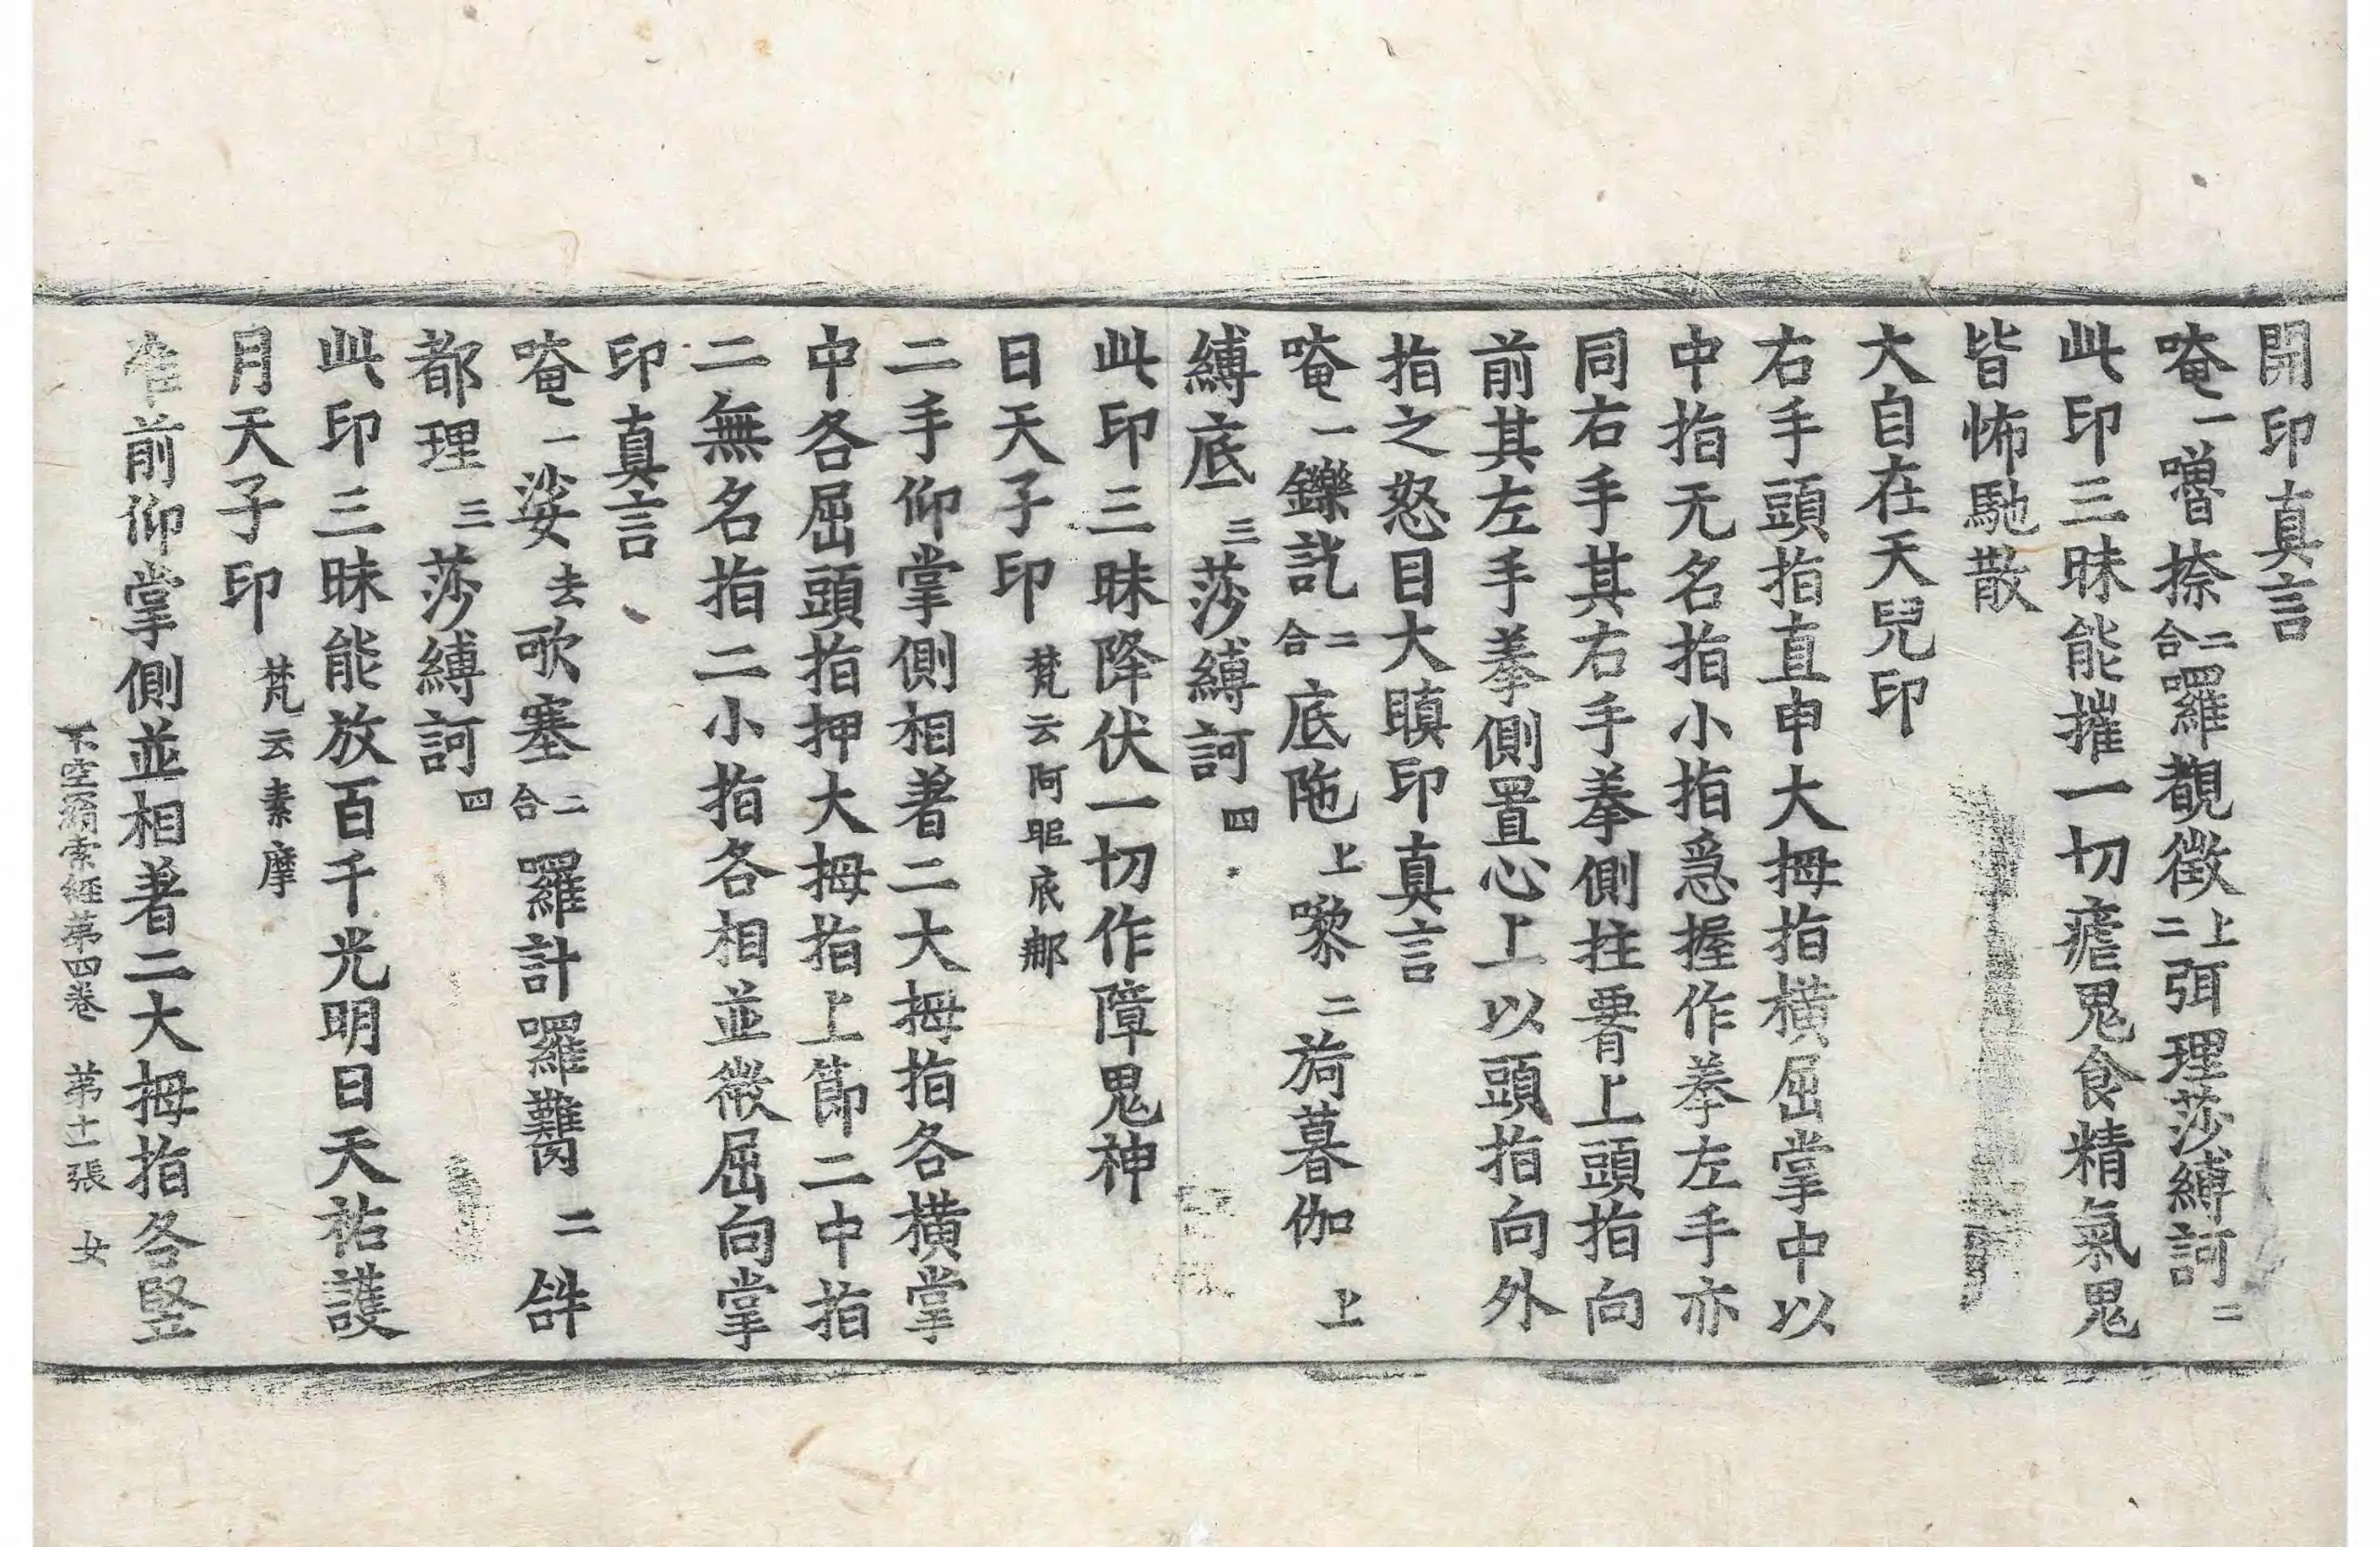 開印真言
唵一嚕捺二合羅覩徵上二弭理莎縛訶二
此印三昧能摧一切瘧鬼食精氣鬼
皆怖馳散
大自在天皃印
右手頭指直申大拇指橫屈掌中以
中指无名指小指急握作拳左手亦
同右手其右手拳側拄腰上頭指向
前其左手拳側置心上以頭指向外
指之怒目大瞋印真言
唵一鑠訖二合底陁上嚟二荷暮伽上
縛底三莎縛訶四
此印三昧降伏一切作障鬼神
日天子印梵云阿昵底耶
二手仰掌側相著二大拇指各橫掌
中各屈頭指押大拇指上節二中指
二無名指二小指各相並微屈向掌
印真言
唵一娑去歌塞二合囉計囉二
都理三莎縛訶四
此印三昧能放百千光明日天祐護
月天子印梵云素摩
准前仰掌側並相著二大拇指各竪
不空羂索經第四卷 第十一張 女